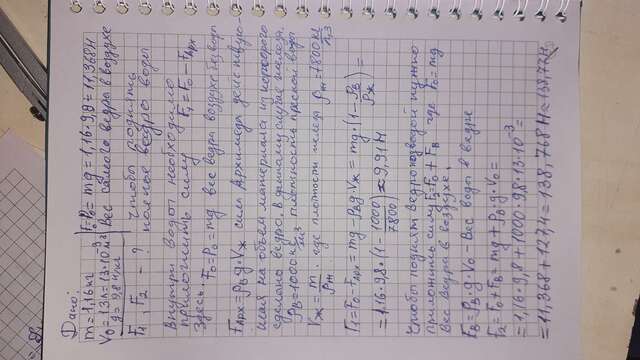 Дано:
m = 1,16 кг
V₀ = 13л = 13·10⁻³ м³
g = 9,8 м/с²
F₁, F₂ - ?
F₀ = P₀ = mg = 1,16·9,8 = 11,368 Н
Вес самого ведра в воздухе
Чтобы поднять
полное ведро воды
внутри воды необходимо
приложить силу F₁ = F₀ - Fарх
здесь. F₀ = P₀ = mg вес ведра воздухе без воды
Fарх = ρв g·Vж сила Архимеда действую-
щая на объем материала из которого
сделано ведро, в данном случае железа.
ρв = 1000 кг/м³ плотность пресной воды
Vж = m/ρж где плотность железа ρж = 7800 кг/м³
F₁ = F₀ - Fарх = mg - ρв g·Vж = mg·(1 - ρв/ρж) =
= 1,16·9,8·(1 - 1000/7800) ≈ 9,91 Н
Чтобы поднять ведро над водой нужно
приложить силу F₂ = F₀ + Fв где F₀ = mg
вес ведра в воздухе.
Fв = ρв g·V₀ - Вес воды в ведре
F₂ = F₀ + Fв = mg + ρв g·V₀ =
= 1,16·9,8 + 1000·9,8·13·10⁻³ =
= 11,368 + 127,4 = 138,768 Н ≈ 138,77 Н.